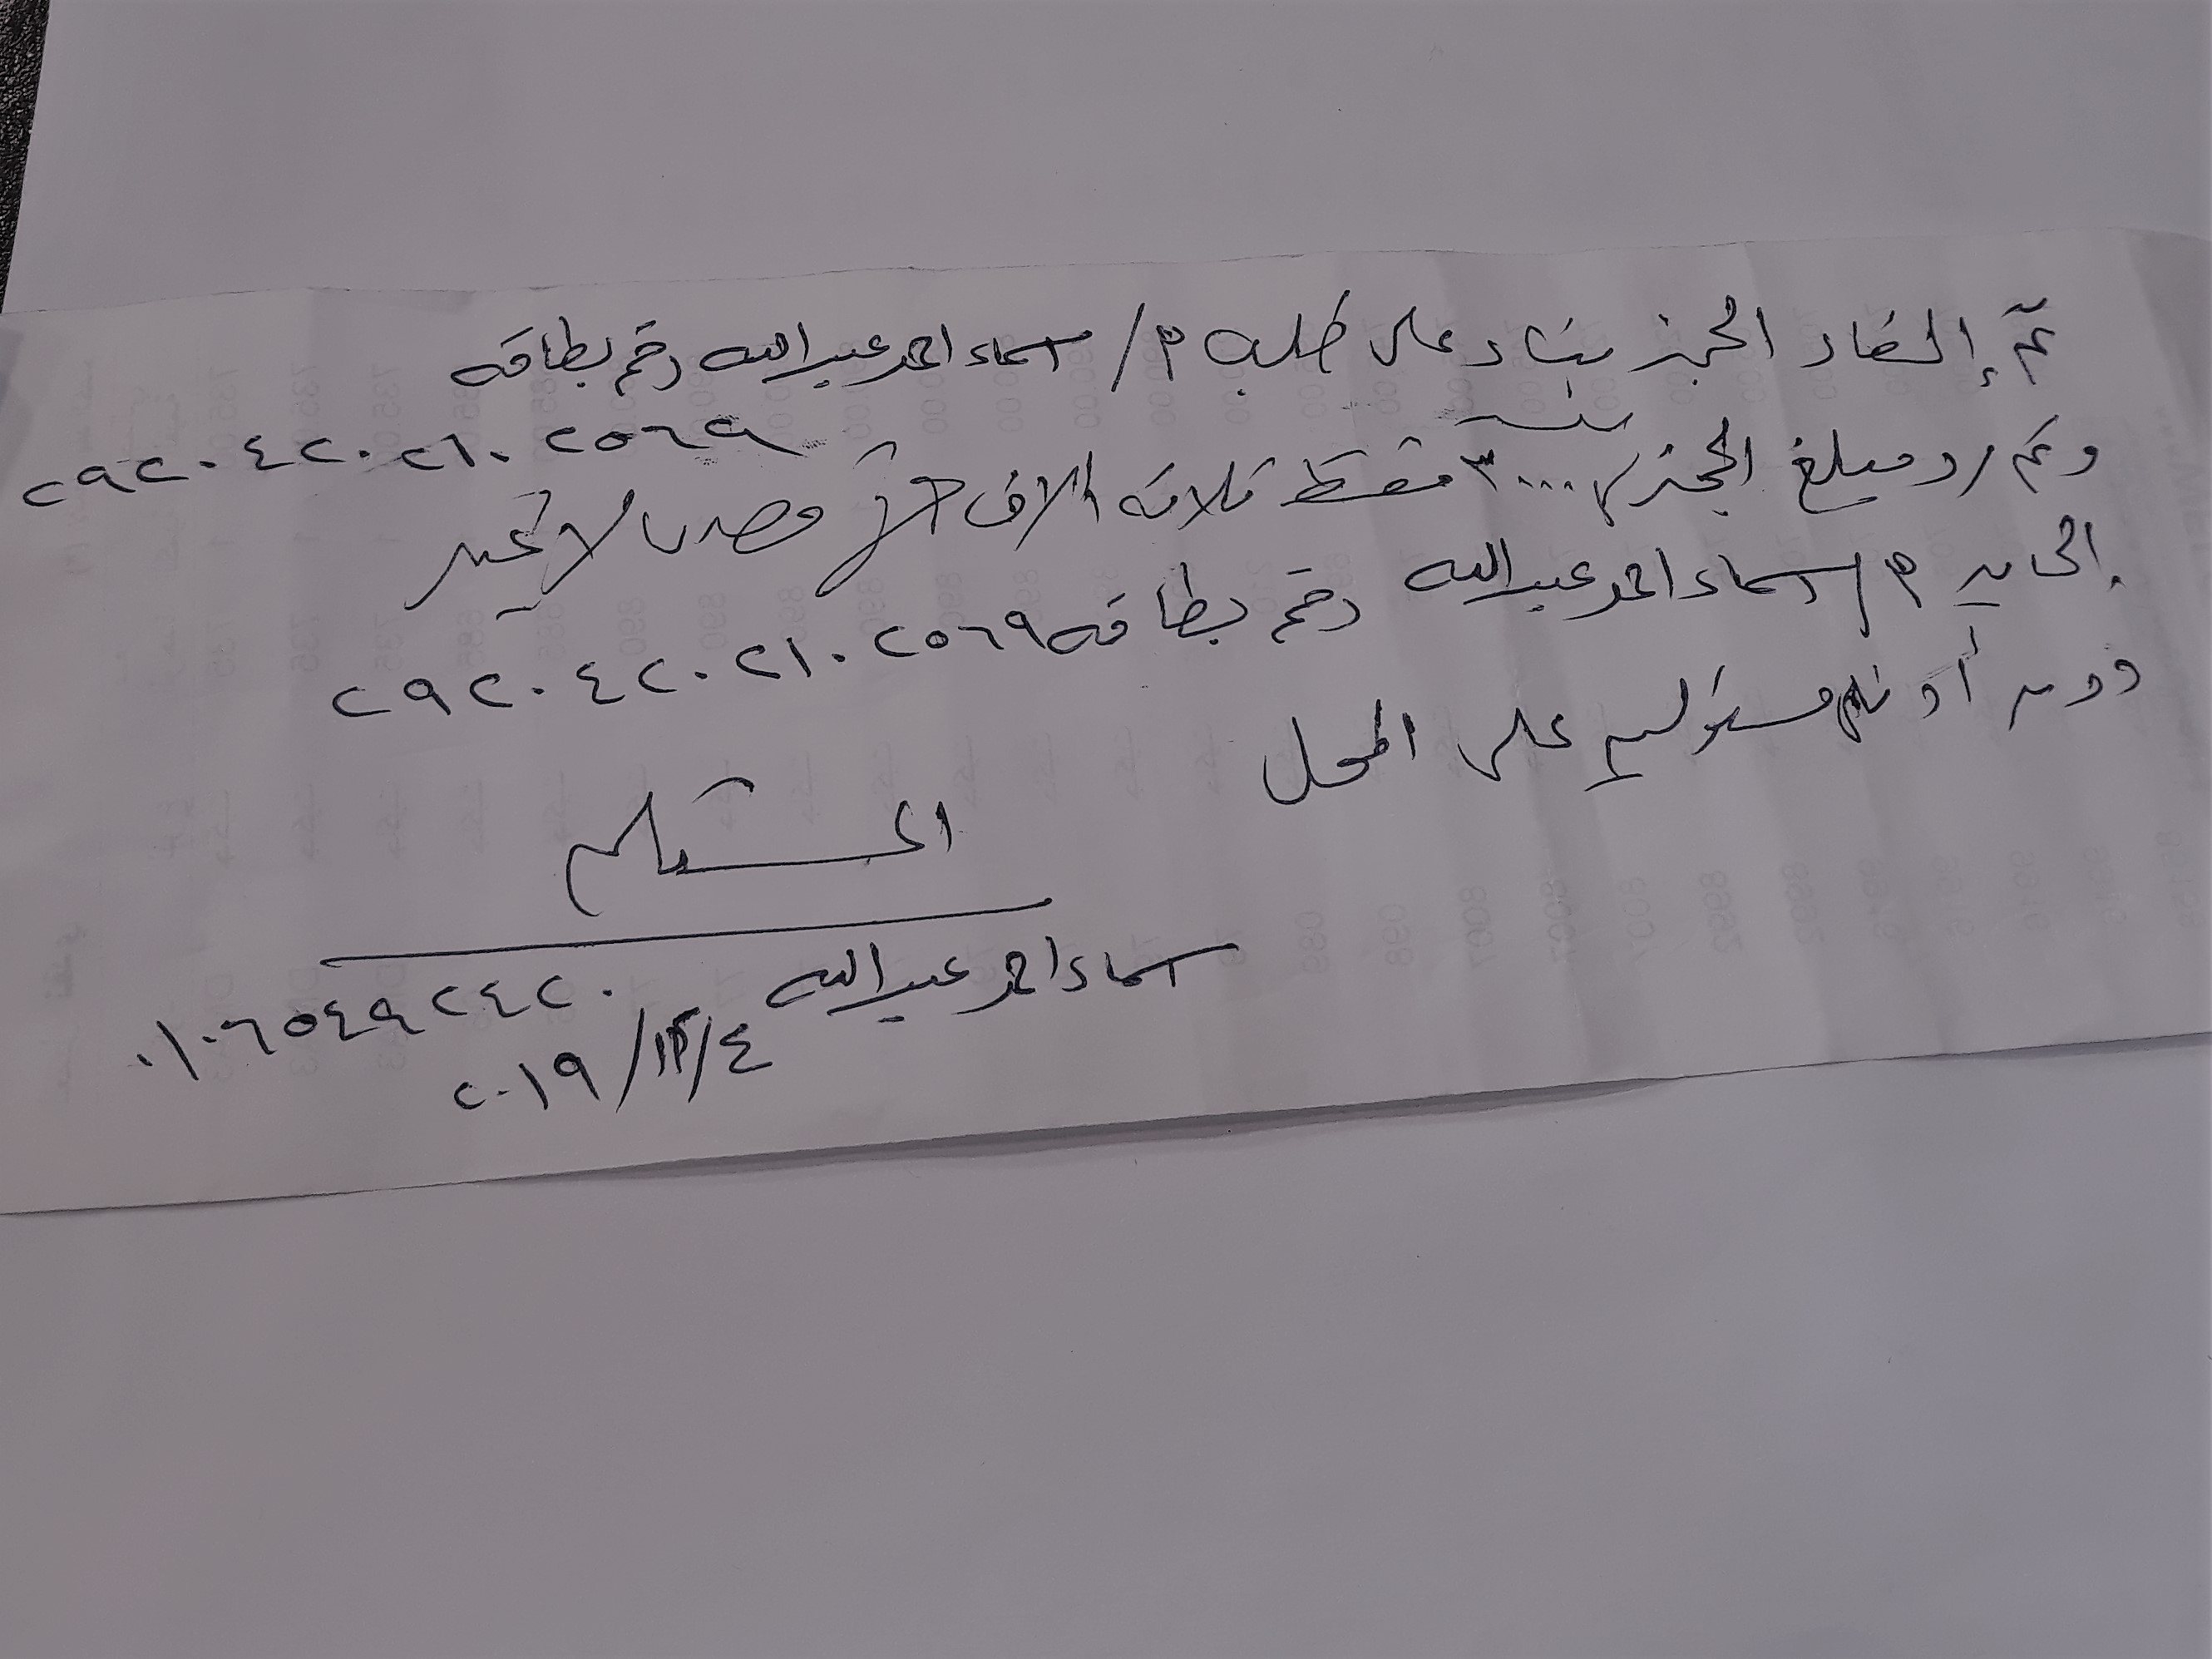 تم إلغاء الحجز بناء على طلب م/ اسماء احمد عبد الله رقم بطاقه
٢٩٢٠٤٢٠٢١٠٢٥٦٩
وتم رد مبلغ الحجز ٣٠٠٠ فقط ثلاثة الاف جنيه مصرى لا غير
إلى م/ اسماء احمد عبد الله رقم بطاقه ٢٩٢٠٤٢٠٢١٠٢٥٦٩
دون أدنى مسئوليه على المحل
المستلم
اسماء احمد عبد الله ٠١٠٦٥٤٩٢٤٢٠
٤/١٢/٢٠١٩